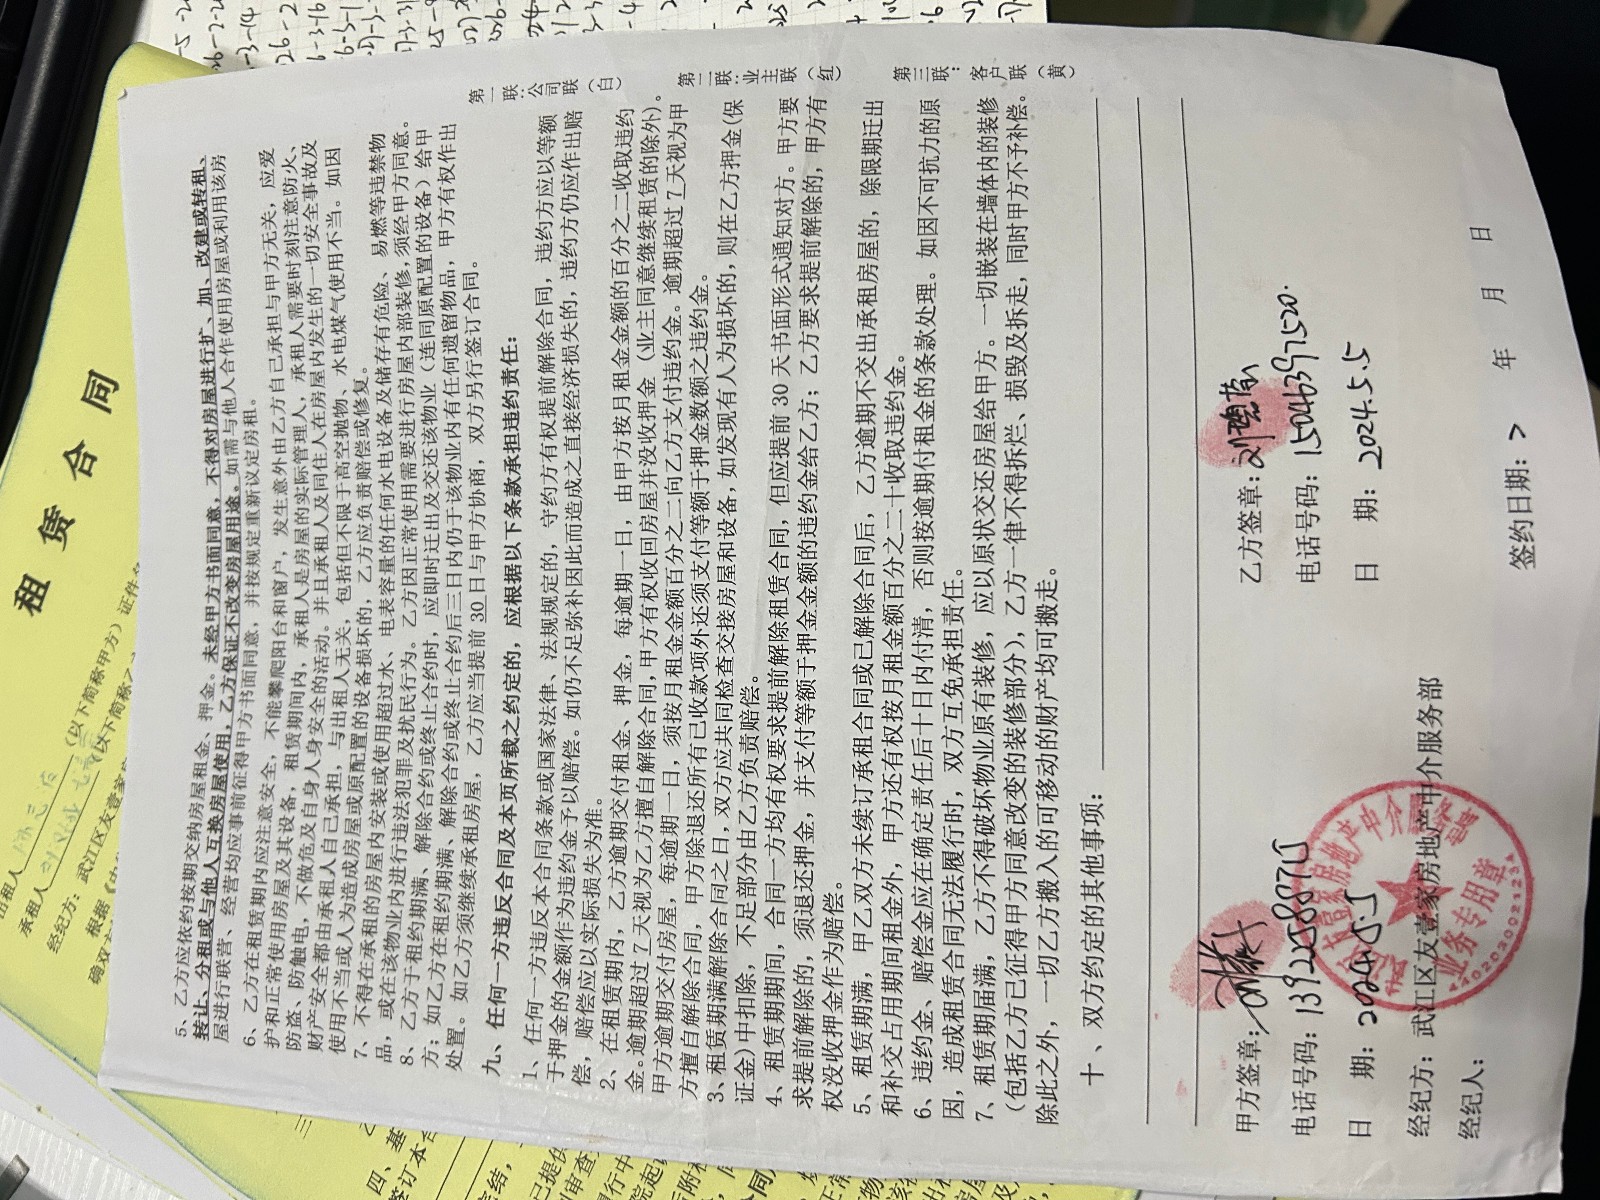 5、乙方应依约按期交纳房屋租金、押金。未经甲方书面同意，不得对房屋进行扩、加、改建或转租、
转让、分租或与他人互换房屋使用，乙方保证不改变房屋用途。如需与他人合作使用房屋或利用该房
屋进行联营、经营均应事前征得甲方书面同意，并按规定重新议定房租。
6、乙方在租赁期内应注意安全，不能攀爬阳台和窗户，发生意外由乙方自己承担与甲方无关，应爱
护和正常使用房屋及其设备，租赁期间内，承租人是房屋的实际管理人，承租人需要时刻注意防火、
防盗、防触电，不做危及自身人身安全的活动。并且承租人及同住人在房屋内发生的一切安全事故及
财产安全都由承租人自己承担，与出租人无关，包括但不限于高空抛物、水电煤气使用不当。如因
使用不当或人为造成房屋或原配置的设备损坏的，乙方应负责赔偿或修复。
7、不得在承租的房屋内安装或使用超过水、电表容量的任何水电设备及储存有危险、易燃等违禁物
品，或在该物业内进行违法犯罪及扰民行为。乙方因正常使用需要进行房屋内部装修，须经甲方同意。
8、乙方于租约期满、解除合约或终止合约时，应即时迁出及交还该物业（连同原配置的设备）给甲
方；如乙方在租约期满、解除合约或终止合约后三日内仍于该物业内有任何遗留物品，甲方有权作出
处置。如乙方须继续承租房屋，乙方应当提前 30 日与甲方协商，双方另行签订合同。
九、任何一方违反合同及本页所载之约定的，应根据以下条款承担违约责任：
1、任何一方违反本合同条款或国家法律、法规规定的，守约方有权提前解除合同，违约方应以等额
于押金的金额作为违约金予以赔偿。如仍不足弥补因此而造成之直接经济损失的，违约方仍应作出赔
偿，赔偿应以实际损失为准。
2、在租赁期内，乙方逾期交付租金、押金，每逾期一日，由甲方按月租金金额的百分之二收取违约
金。逾期超过 7 天视为乙方擅自解除合同，甲方有权收回房屋并没收押金（业主同意继续租赁的除外）。
甲方逾期交付房屋，每逾期一日，须按月租金金额百分之二向乙方支付违约金。逾期超过 7 天视为甲
方擅自解除合同，甲方除退还所有已收款项外还须支付等额于押金数额之违约金。
3、租赁期满解除合同之日，双方应共同检查交接房屋和设备，如发现有人为损坏的，则在乙方押金（保
证金）中扣除，不足部分由乙方负责赔偿。
4、租赁期期间，合同一方均有权要求提前解除租赁合同，但应提前 30 天书面形式通知对方。甲方要
求提前解除的，须退还押金，并支付等额于押金金额的违约金给乙方；乙方要求提前解除的，甲方有
权没收押金作为赔偿。
5、租赁期满，甲乙双方未续订承租合同或已解除合同后，乙方逾期不交出承租房屋的，除限期迁出
和补交占用期间租金外，甲方还有权按月租金额百分之二十收取违约金。
6、违约金、赔偿金应在确定责任后十日内付清，否则按逾期付租金的条款处理。如因不可抗力的原
因，造成租赁合同无法履行时，双方互免承担责任。
7、租赁期届满，乙方不得破坏物业原有装修，应以原状交还房屋给甲方。一切嵌装在墙体内的装修
（包括乙方已征得甲方同意改变的装修部分），乙方一律不得拆烂、损毁及拆走，同时甲方不予补偿。
除此之外，一切乙方搬入的可移动的财产均可搬走。
十、双方约定的其他事项：
第一联：公司联（白）
第二联：业主联（红）
第三联：客户联（黄）
甲方签章：
乙方签章：
电话号码：13922588071
电话号码：15046397520.
日 期：2024.5.5
日 期：2024.5.5
经纪方：武江区友壹家房地产中介服务部
经纪人：
签约日期： 年 月 日
武江区友壹家房地产中介服务部
业务专用章
租 赁 合 同
出租人
（以下简称甲方）证件
承租人
（以下简称
经纪方：武江区友壹家
根据《中